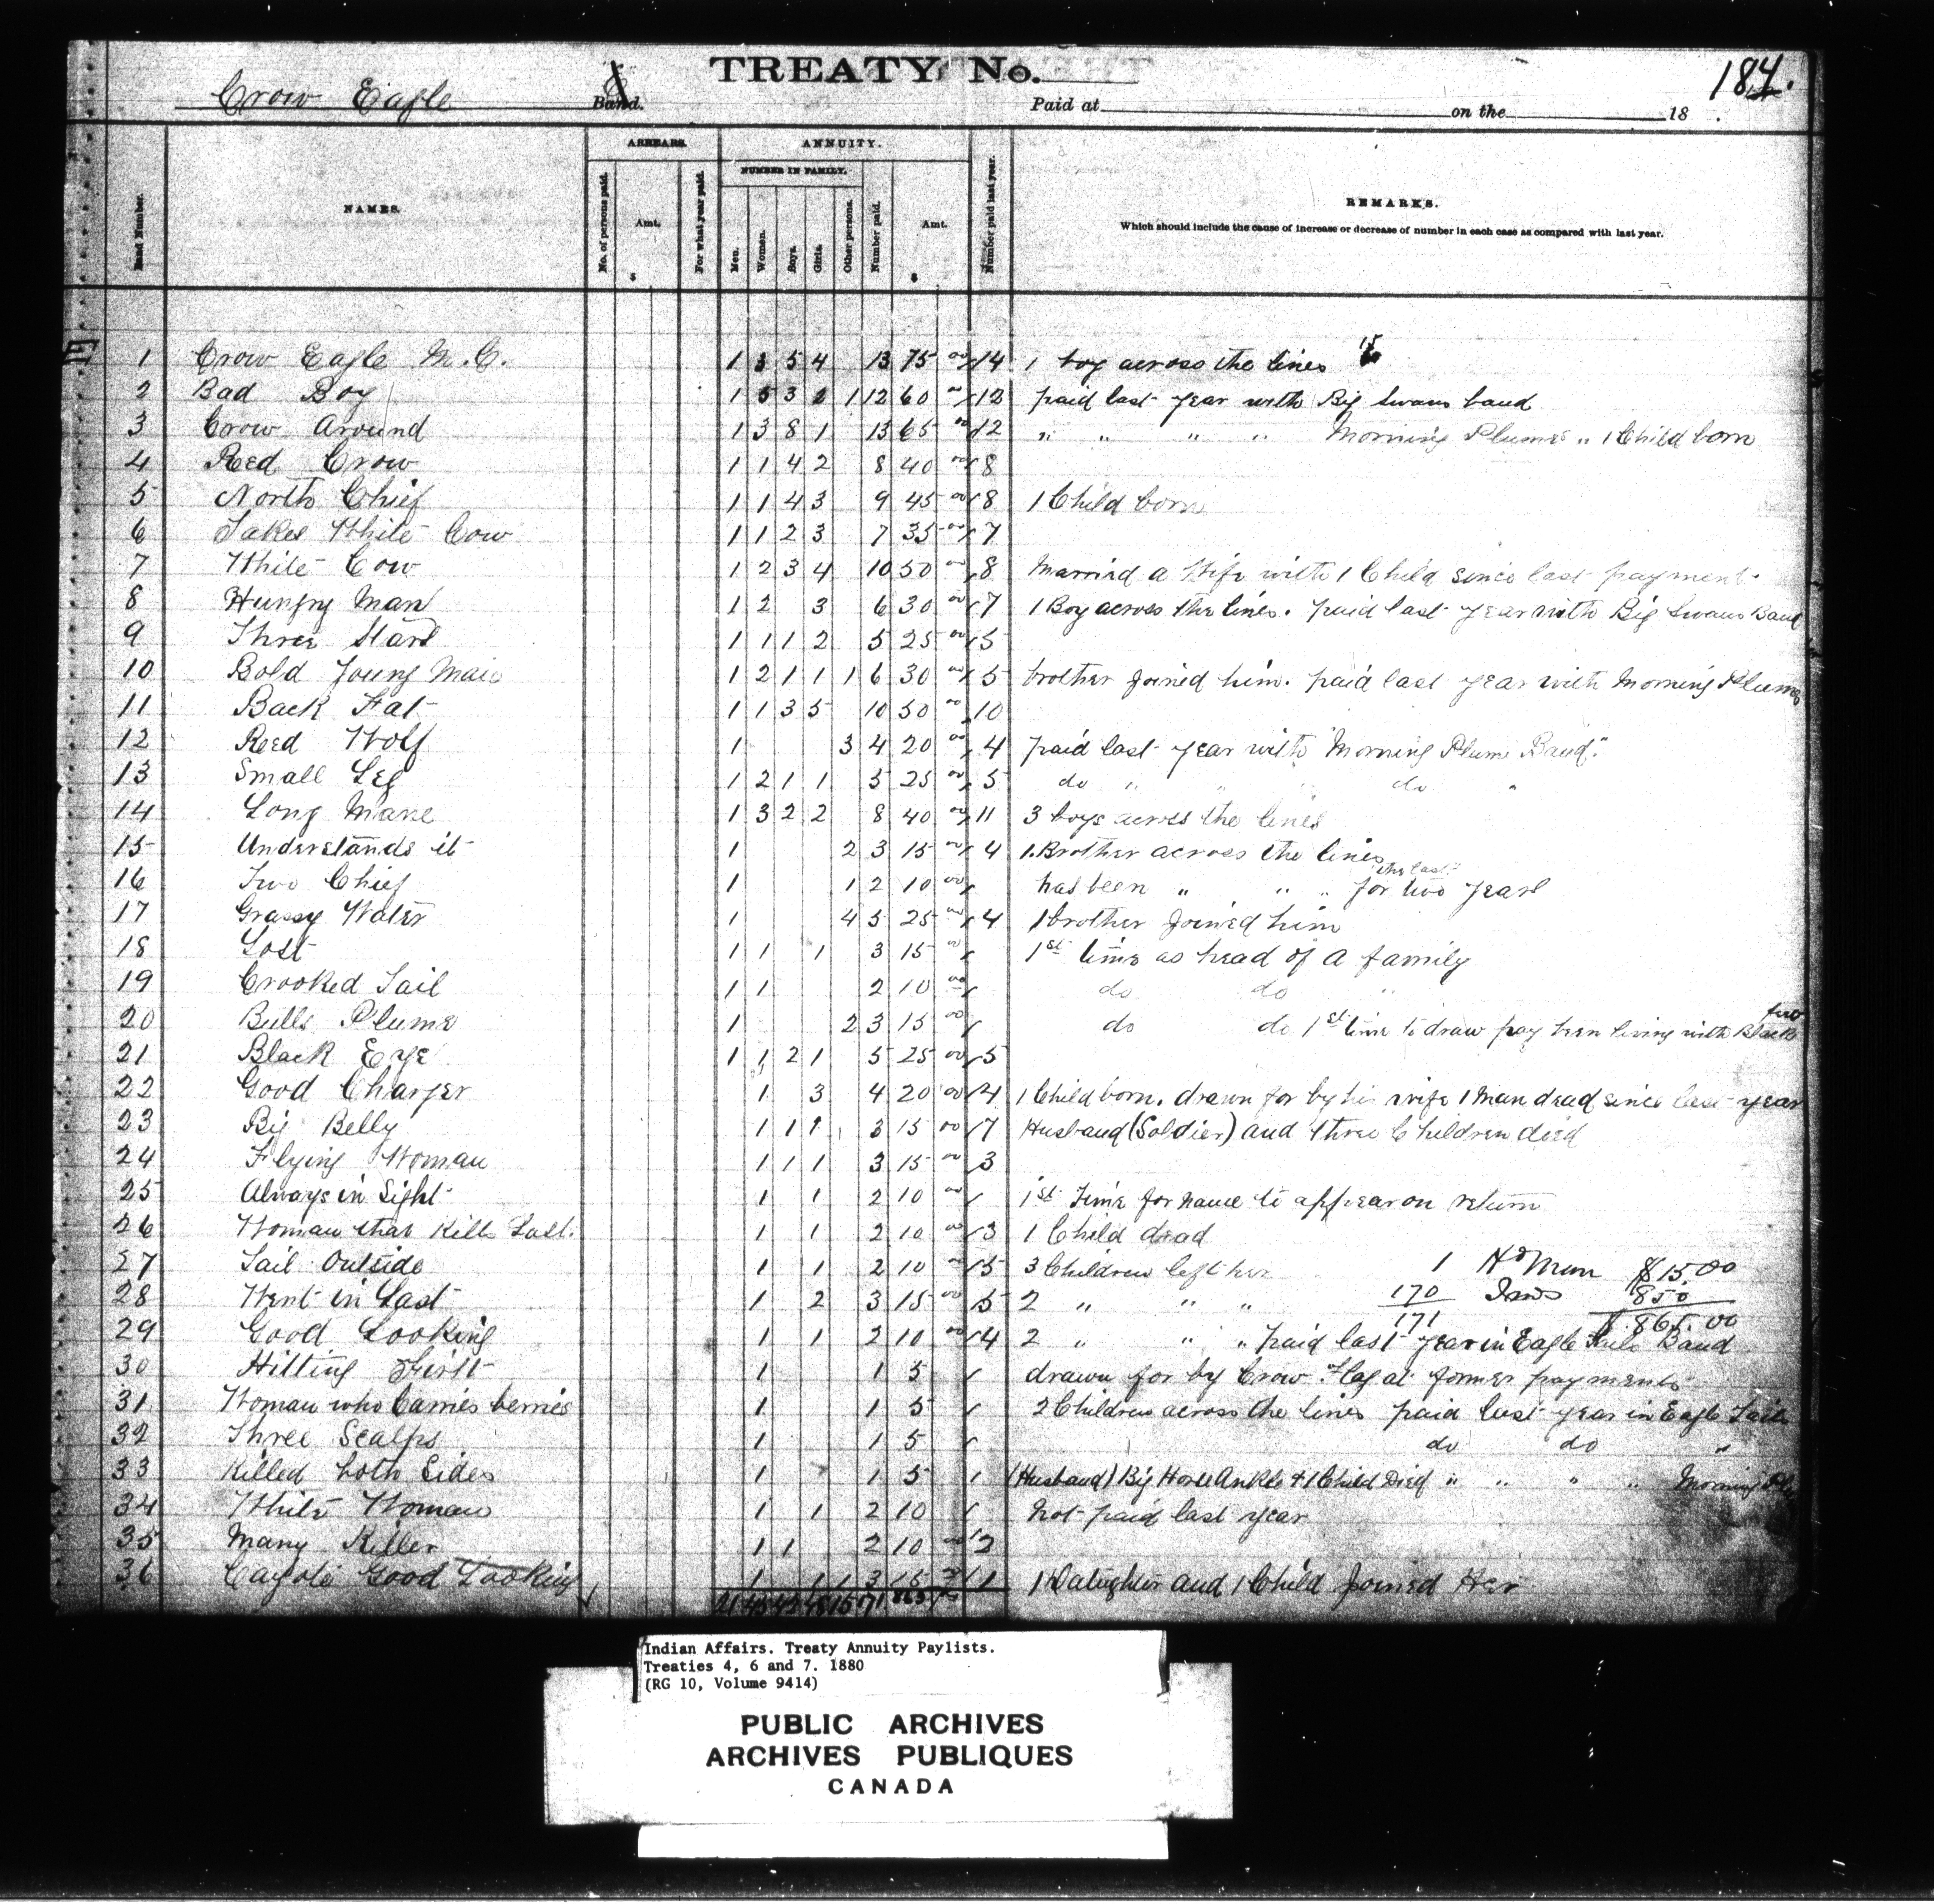 TREATY No.
184.
Crow Eagle Band.
Paid at on the 18
Band Number.
NAMES.
ARREARS.
No. of persons paid.
Amt.
$
For what year paid.
ANNUITY.
NUMBER IN FAMILY.
Men.
Women.
Boys.
Girls.
Other persons.
Number paid.
Amt.
$
Number paid last year.
REMARKS.
Which should include the cause of increase or decrease of number in each case as compared with last year.
1 Crow Eagle M.C. 1 3 5 4 13 75 00 14 1 boy across the lines 15
2 Bad Boy 1 5 3 2 1 12 60 00 12 paid last year with Big Swans band
3 Crow Around 1 3 8 1 13 65 00 12 " " " " Morning Plumes " 1 Child born
4 Red Crow 1 1 4 2 8 40 00 8
5 North Chief 1 1 4 3 9 45 00 8 1 Child born
6 Takes White Cow 1 1 2 3 7 35 00 7
7 White Cow 1 2 3 4 10 50 00 8 Married a Wife with 1 Child since last payment.
8 Hungry Man 1 2 3 6 30 00 7 1 Boy across the lines. paid last year with Big Swans Band
9 Three Stars 1 1 1 2 5 25 00 5
10 Bold Young Man 1 2 1 1 1 6 30 00 5 brother joined him. paid last year with Morning Plume
11 Back Fat 1 1 3 5 10 50 00 10
12 Red Wolf 1 3 4 20 00 4 paid last year with "Morning Plume Band."
13 Small Leg 1 2 1 1 5 25 00 5 do " " " do "
14 Long Mane 1 3 2 2 8 40 00 11 3 boys across the lines
15 Understands it 1 2 3 15 00 4 1 Brother across the lines
16 Two Chief 1 1 2 10 00 has been " " " for the last two years
17 Grassy Water 1 4 5 25 00 4 1 brother joined him
18 Lost 1 1 1 3 15 00 1st time as head of a family
19 Crooked Tail 1 1 2 10 00 do do "
20 Bulls Plume 1 2 3 15 00 do do 1st time to draw pay been living with Black
21 Black Eye 1 1 2 1 5 25 00 5
22 Good Charger 1 3 4 20 00 4 1 Child born. drawn for by his wife 1 Man dead since last year
23 Big Belly 1 1 1 3 15 00 7 Husband (Soldier) and three Children died
24 Flying Woman 1 1 1 3 15 00 3
25 Always in Sight 1 1 2 10 00 1st Time for name to appear on return
26 Woman that Kills Last. 1 1 2 10 00 3 1 Child dead
27 Tail Outside 1 1 2 10 00 5 3 Children left her 1 Hd Man $15.00
28 Went in Last 1 2 3 15 00 5 2 " " " 170 Inds 850
171 $865.00
29 Good Looking 1 1 2 10 00 4 2 " " " paid last year in Eagle Tails Band
30 Hitting First 1 1 5 drawn for by Crow Flag at former payments
31 Woman who Carries berries 1 1 5 2 Children across the lines paid last year in Eagle Tails
32 Three Scalps 1 1 5 do do "
33 Killed both Sides 1 1 5 1 (Husband) Big Horse Ankle & 1 Child Died " " " " Morning
34 White Woman 1 1 2 10 Not paid last year
35 Many Killer 1 1 2 10 00 2
36 Good Looking 1 1 1 3 15 1 1 Daughter and 1 Child joined Her
21 43 43 15 171 865
Indian Affairs. Treaty Annuity Paylists.
Treaties 4, 6 and 7. 1880
(RG 10, Volume 9414)
PUBLIC ARCHIVES
ARCHIVES PUBLIQUES
CANADA